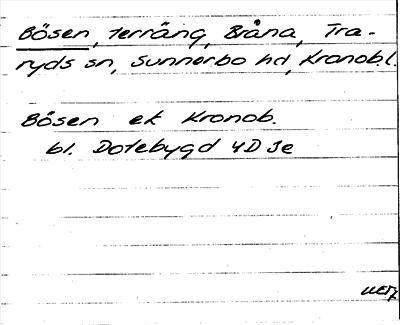 Bösen, terräng, Bråna, Tra-
ryds sn, Sunnerbo hd, Kronob.l.
Bösen ek Kronob.
bl. Dotebygd 4D Se